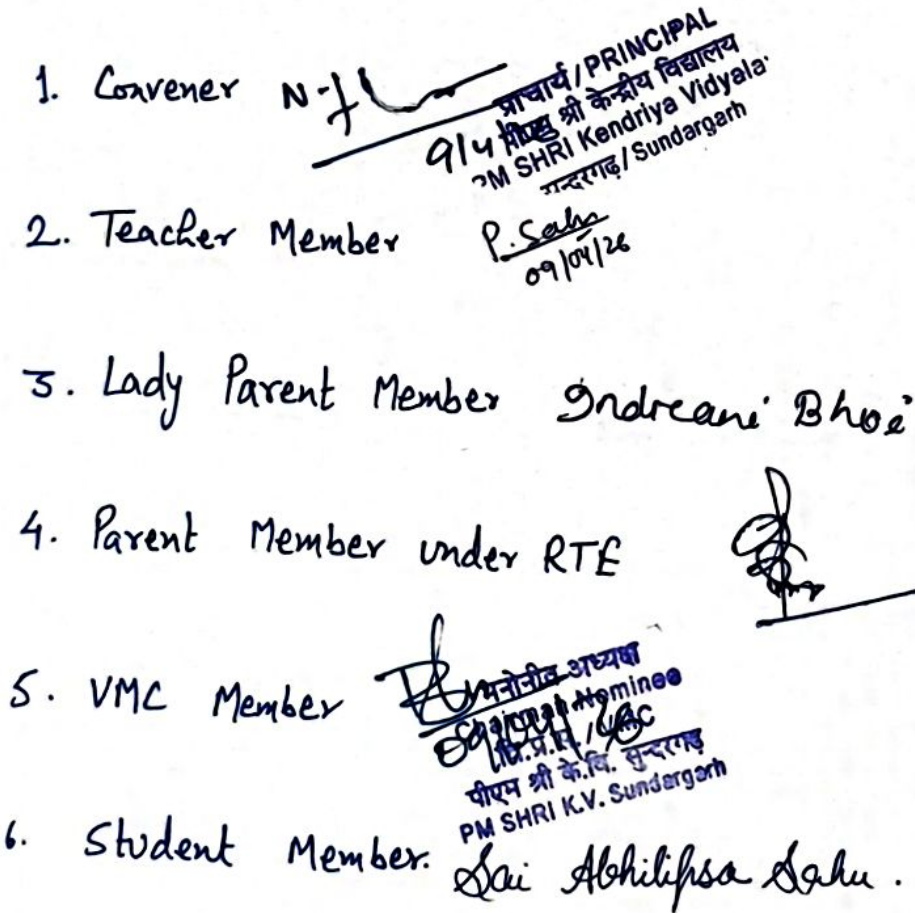 1. Convener
प्राचार्य / PRINCIPAL
पीएम श्री केन्द्रीय विद्यालय
PM SHRI Kendriya Vidyala
सुन्दरगढ़ / Sundargarh
2. Teacher Member P. Sahu
09/04/26
3. Lady Parent Member Indreani Bhoi
4. Parent Member under RTE
5. VMC Member
मनोनीत अध्यक्ष
Chairman Nominee
वि.प्र.स. / VMC
पीएम श्री के.वि. सुन्दरगढ़
PM SHRI K.V. Sundargarh
6. Student Member. Sai Abhilipsa Sahu.